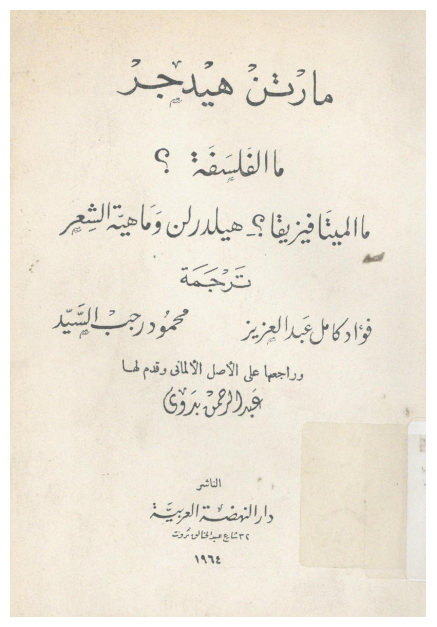 مارتن هيدجر
ما الفَلسَفَة ؟
ما الميتَافيزيقا ؟ـ هيلدرلن وَمَاهيّة الشِعر
تَرجَمَة
فؤاد كامل عَبد العزيز محمُود رجب السَّيّد
وراجعها على الأصل الألمانى وقدم لها
عَبد الرحمن بدَوى
الناشر
دار النهضَة العَربيَّة
٣٢ شارع عبد الخالق ثروت
١٩٦٤